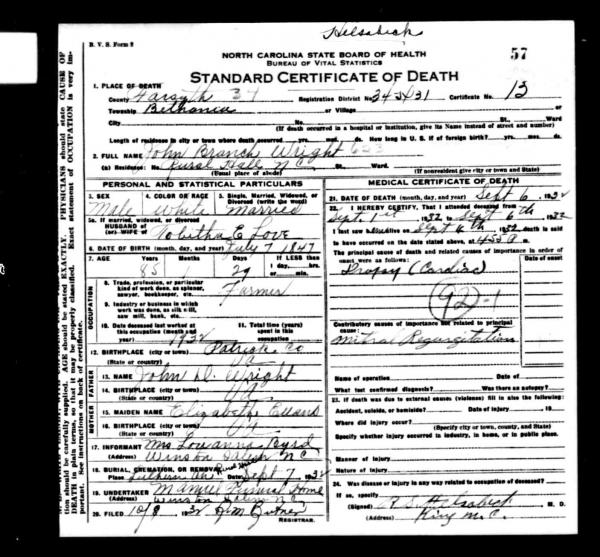 Helsabeck
B. V. S. Form 2
57
NORTH CAROLINA STATE BOARD OF HEALTH
BUREAU OF VITAL STATISTICS
STANDARD CERTIFICATE OF DEATH
1. PLACE OF DEATH
County Forsyth 34 Registration District No. 34 31 Certificate No. 13
Township Bethania or Village or
City No. St. Ward
(If death occurred in a hospital or institution, give its Name instead of street and number)
Length of residence in city or town where death occurred yrs. mos. ds. How long in U. S. if of foreign birth? yrs. mos. ds.
2. FULL NAME John Branch Wright
(a) Residence: No. Rural Hall N.C. St. Ward
(Usual place of abode) (If nonresident give city or town and State)
PERSONAL AND STATISTICAL PARTICULARS
3. SEX 4. COLOR OR RACE 5. Single, Married, Widowed, or Divorced (write the word)
Male White Married
5a. If married, widowed, or divorced
HUSBAND of
(or) WIFE of Tobitha E Love
6. DATE OF BIRTH (month, day, and year) July 7 1847
7. AGE Years Months Days If LESS than
1 day, hrs.
or min.
85 1 29
OCCUPATION
8. Trade, profession, or particular kind of work done, as spinner, sawyer, bookkeeper, etc. Farmer
9. Industry or business in which work was done, as silk mill, saw mill, bank, etc.
10. Date deceased last worked at this occupation (month and year) 1932 11. Total time (years) spent in this occupation
12. BIRTHPLACE (city or town) Patrick Co
(State or country) Va
FATHER
13. NAME John D. Wright
14. BIRTHPLACE (city or town)
(State or country) Va
MOTHER
15. MAIDEN NAME Elizabeth Evans
16. BIRTHPLACE (city or town)
(State or country)
17. INFORMANT Mrs Louanna Byrd
(Address) Winston Salem N C
18. BURIAL, CREMATION, OR REMOVAL
Place Date Sept 7 1932
19. UNDERTAKER Funeral Home
(Address) Winston Salem N.C.
20. FILED 10/8 1932 H.M. Butner
REGISTRAR.
MEDICAL CERTIFICATE OF DEATH
21. DATE OF DEATH (month, day, and year) Sept 6 1932
22. I HEREBY CERTIFY, That I attended deceased from
Sept. 1st 1932 to Sept 6th 1932
I last saw alive on Sept 6th 1932 death is said
to have occurred on the date stated above, at 4:55 a m.
The principal cause of death and related causes of importance in order of onset were as follows: Date of onset
Dropsy (Cardiac)
92-1
Contributory causes of importance not related to principal cause:
Mitral Regurgitation
Name of operation Date of
What test confirmed diagnosis? Was there an autopsy?
23. If death was due to external causes (violence) fill in also the following:
Accident, suicide, or homicide? Date of injury 19
Where did injury occur?
(Specify city or town, county, and State)
Specify whether injury occurred in industry, in home, or in public place.
Manner of injury
Nature of injury
24. Was disease or injury in any way related to occupation of deceased?
If so, specify
(Signed) R. S. Helsabeck M. D.
(Address) King N.C.